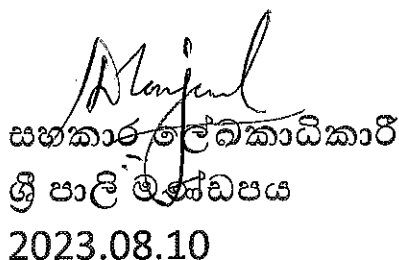 සහකාර ලේඛකාධිකාරී
ශ්‍රී පාලි මණ්ඩපය
2023.08.10